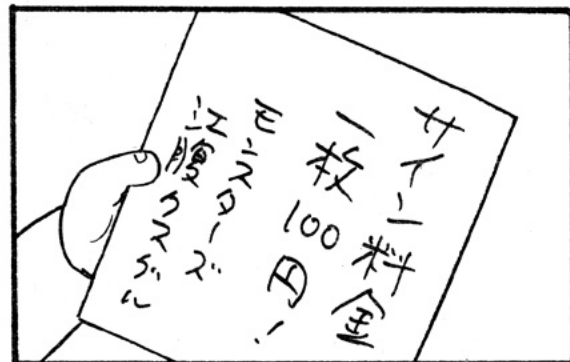 サイン料金
一枚100円！
モンスターズ
江腹クスダル